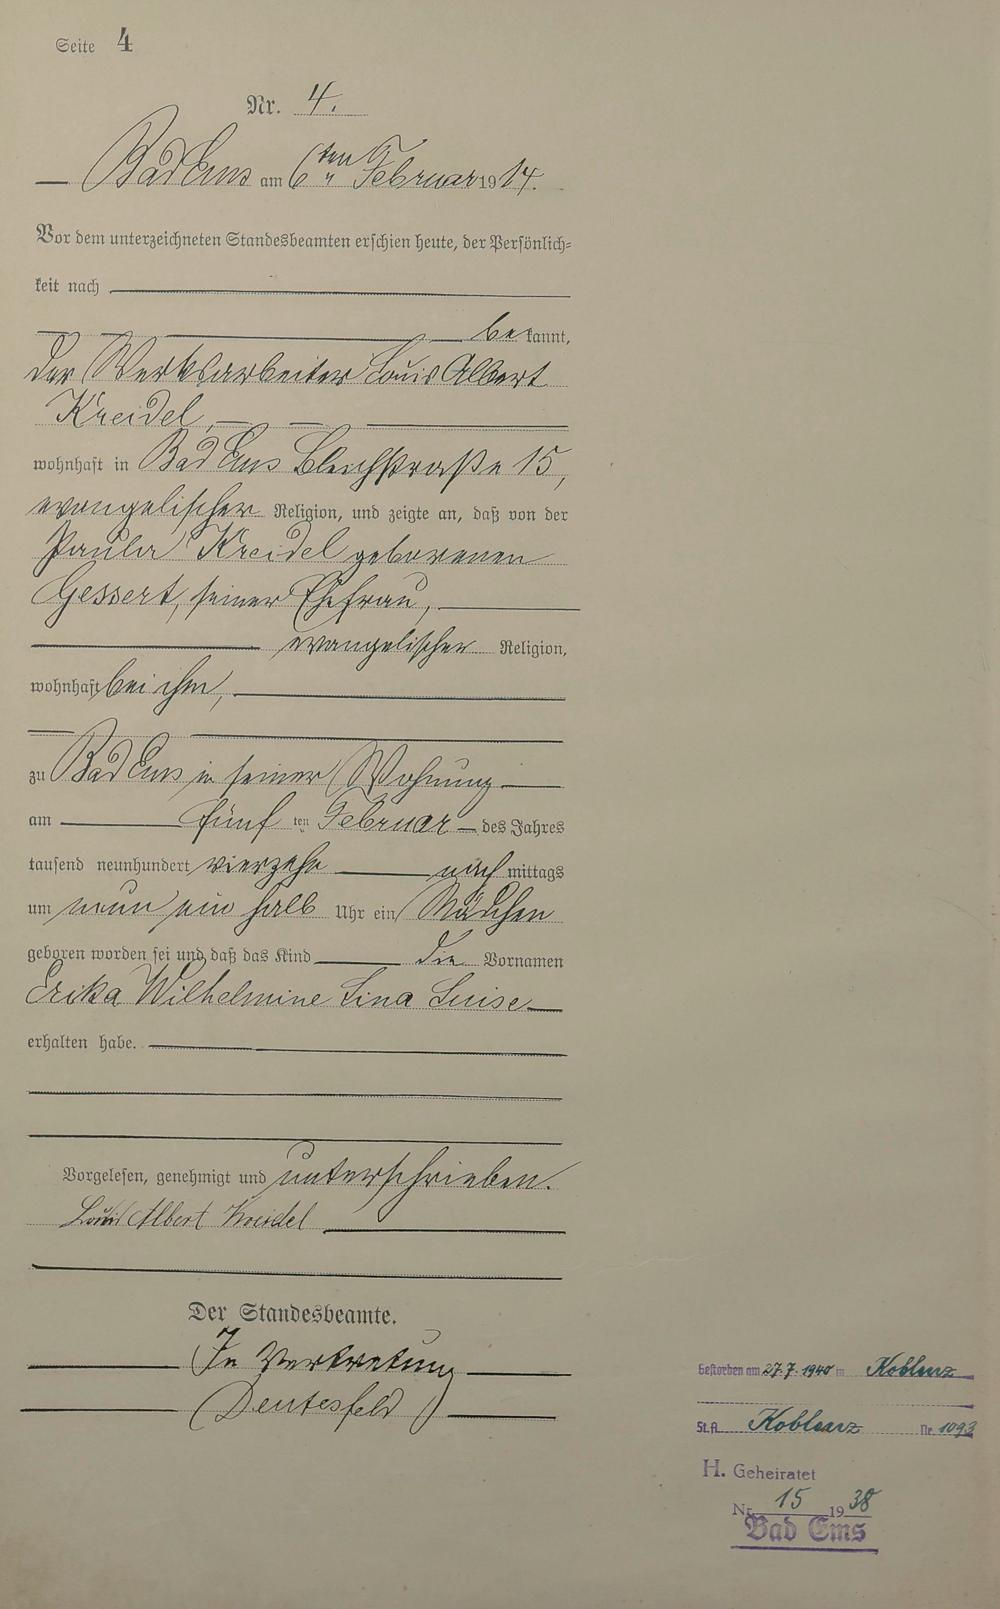 Seite 4
Nr. 4.
Bad Ems am 6ten Februar 1914.
Vor dem unterzeichneten Standesbeamten erschien heute, der Persönlich-
keit nach
bekannt,
der Werksarbeiter Louis Albert
Kreidel,
wohnhaft in Bad Ems Bleichstraße 15,
evangelischer Religion, und zeigte an, daß von der
Paula Kreidel geborenen
Gessert, seiner Ehefrau,
evangelischer Religion,
wohnhaft bei ihm,
zu Bad Ems in seiner Wohnung
am fünf ten Februar des Jahres
tausend neunhundert vierzehn nachmittags
um neun ein halb Uhr ein Mädchen
geboren worden sei und daß das Kind die Vornamen
Erika Wilhelmine Lina Luise
erhalten habe.
Vorgelesen, genehmigt und unterschrieben.
Louis Albert Kreidel
Der Standesbeamte.
In Vertretung
Deutesfeld
Gestorben am 27.7.1940 in Koblenz
St.A. Koblenz Nr. 1093
H. Geheiratet
Nr. 15 1938
Bad Ems